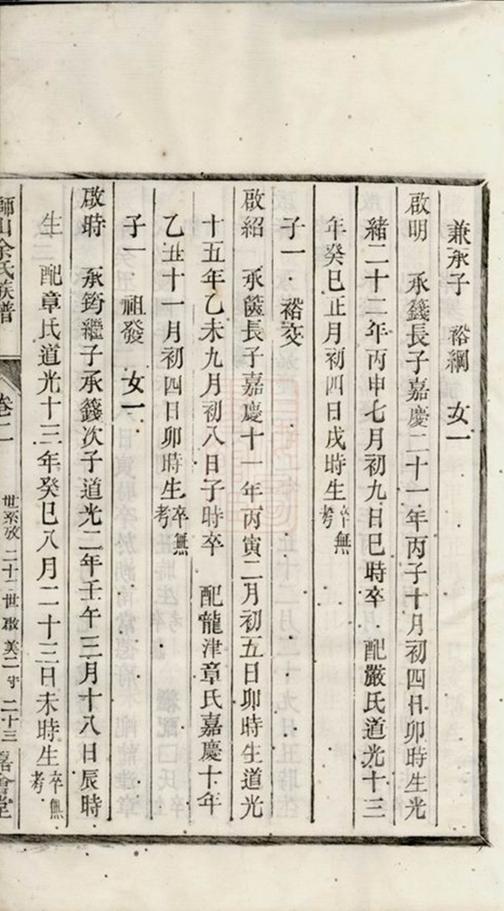 兼承子 裕綱 女一
啟明 承籛長子嘉慶二十一年丙子十月初四日卯時生光
緒二十二年丙申七月初九日巳時卒 配嚴氏道光十三
年癸巳正月初四日戌時生卒無考
子一 裕交
啟紹 承篋長子嘉慶十一年丙寅二月初五日卯時生道光
十五年乙未九月初八日子時卒 配龍津章氏嘉慶十年
乙丑十一月初四日卯時生卒無考
子一 祖發 女一
啟時 承筠繼子承籛次子道光二年壬午三月十八日辰時
生 配章氏道光十三年癸巳八月二十三日未時生卒無考
師山余氏族譜 卷二 世系攷 二十二世 啟 美二守 二十三 嘉會堂